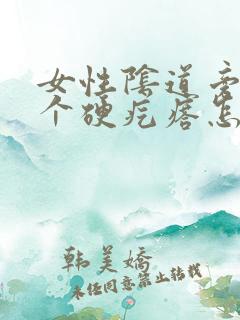 女性陰道旁
个硬疙瘩怎
韩美嬌
未经同意禁止转载